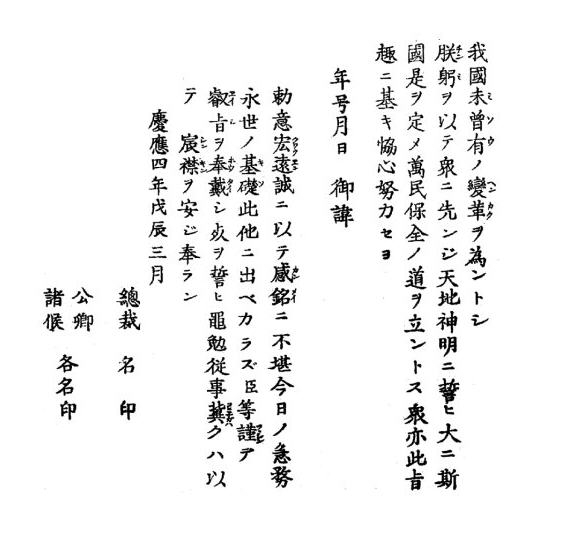 我國未曾有ノ變革ヲ為ントシ
朕躬ヲ以テ衆ニ先ンジ天地神明ニ誓ヒ大ニ斯
國是ヲ定メ萬民保全ノ道ヲ立ントス衆亦此旨
趣ニ基キ恊心努力セヨ
年号月日 御諱
勅意宏遠誠ニ以テ感銘ニ不堪今日ノ急務
永世ノ基礎此他ニ出ベカラズ臣等謹テ
叡旨ヲ奉戴シ死ヲ誓ヒ黽勉従事冀クハ以
テ 宸襟ヲ安ジ奉ラン
慶應四年戊辰三月
總裁 名 印
公卿
諸侯 各名印